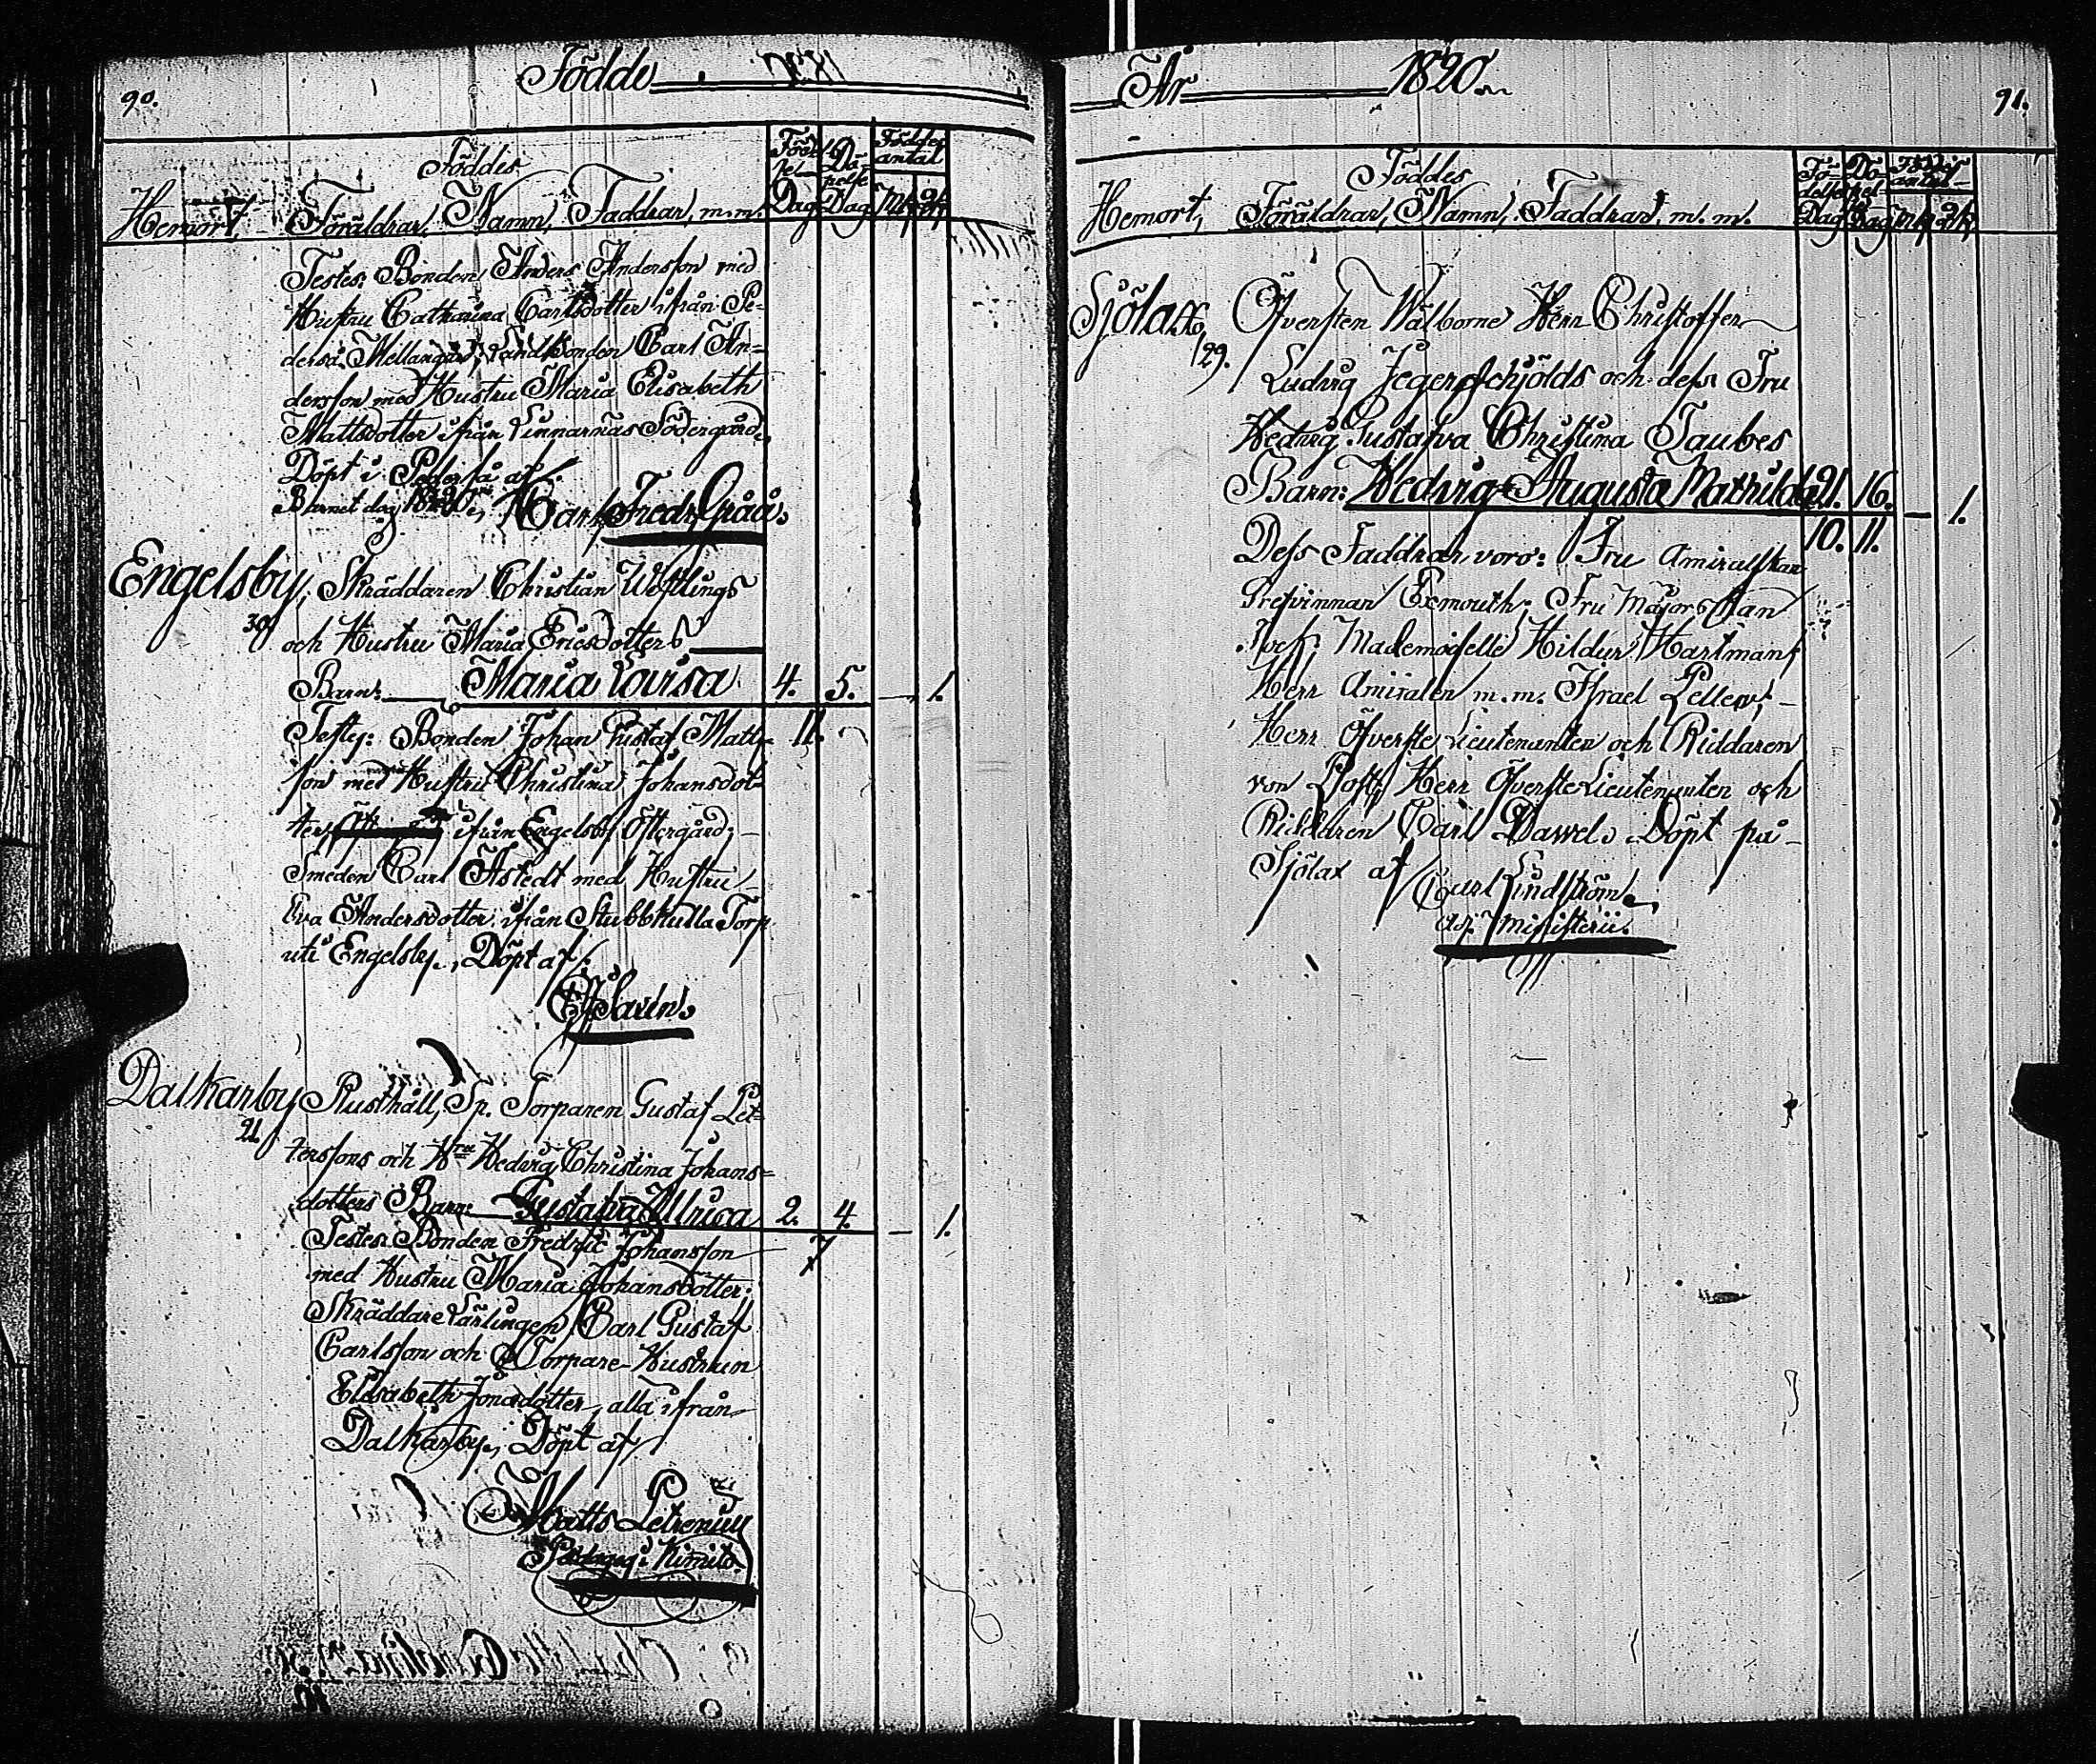 90.
Födde
Föddes
Hemort, Föräldrar, Namn, Faddrar, m.m.
Födel Dag Döpelse Dag Föddes antal Mk. Qk.
Testes: Bonden Anders Andersson med
Hustru Catharina Carlsdotter ifrån Pe-
derså Mellangård; Bonden Carl An-
dersson med Hustru Maria Elisabeth
Mattsdotter ifrån Linnarnäs Södergård,
Döpt i Pederså af
Barnet dag 1820 Carl Fredr. Gråå.
Engelsby, Skräddaren Christian Wöstlings
30 och Hustru Maria Ericsdotters
Barn: Maria Lovisa 4. 5. — 1.
Testes: Bonden Johan Gustaf Matts- 11.
son med Hustru Christina Johansdot-
ter ifrån Engelsby Östergård;
Smeden Carl Åstedt med Hustru
Eva Andersdotter ifrån Stubbkulla Torp
uti Engelsby, Döpt af
Sarin.
Dalkarby Rusthåll, Sp. Torparen Gustaf Pet-
21 terssons och Hru Hedvig Christina Johans-
dotters Barn: Gustafva Ulrica 2. 4. — 1.
Testes: Bonden Fredric Johansson 7
med Hustru Maria Johansdotter;
Skräddare Lärlingen Carl Gustaf
Carlsson och Torpare-Hustrun
Elisabeth Jonadotter, alla ifrån
Dalkarby, Döpt af
Matts Petrenius
Pædagog i Kimito
År 1820
91.
Föddes
Hemort, Föräldrar, Namn, Faddrar, m. m.
Födelse Dag Döpel Dag antal Mk. Qk.
Sjölax, Öfversten Wälborne Herr Christoffer
129. Ludvig Jegerschjölds och dess Fru
Hedvig Gustafva Christina Taubes
Barn: Hedvig Augusta Mathilda 21. 16. — 1.
10. 11.
Dess Faddrar voro: Fru Amiralskan
Grefvinnan Exmouth; Fru Majorskan
Mademoiselle Hildur Hartman;
Herr Amiralen m.m. Israel Pellew;
Herr Öfverste Lieutenanten och Riddaren
von Post; Herr Öfverste Lieutenanten och
Riddaren Carl Döpt på
Sjölax af Carl Lindström
adj. Ministerii.